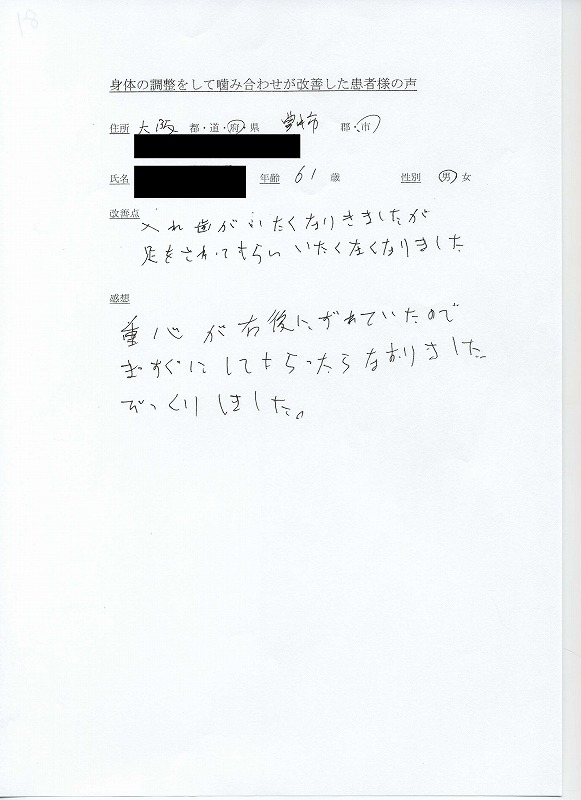 18
身体の調整をして噛み合わせが改善した患者様の声
住所 大阪 都・道・府・県 堺市 郡・市
氏名 年齢 61 歳 性別 男 女
改善点
入れ歯がいたくなりきましたが
足をさわってもらいいたく左くなりました
感想
重心が右後にずれていたので
まっすぐにしてもらったらなおりました
びっくりしました。